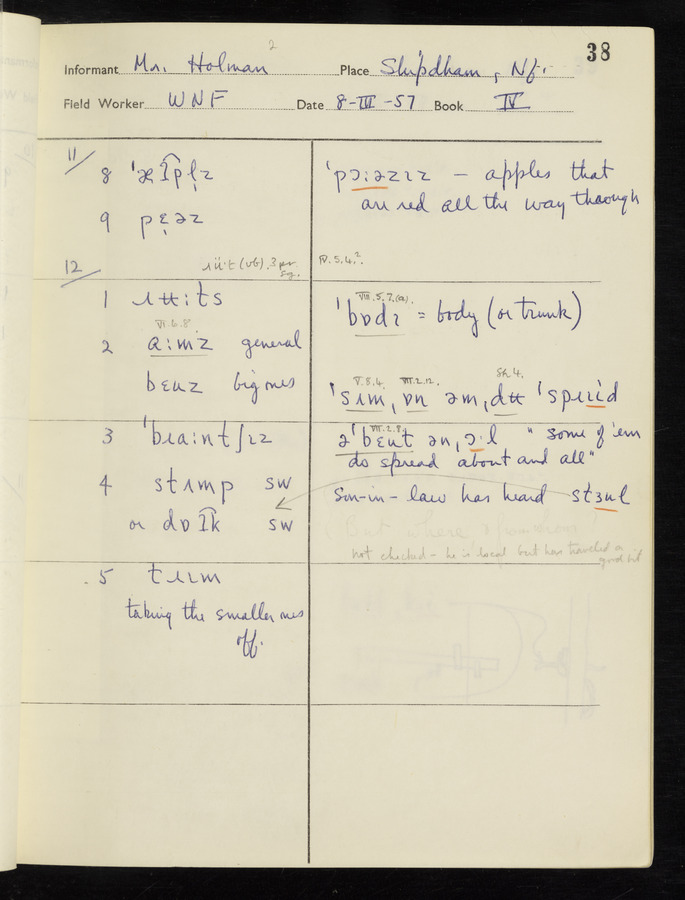 38
Informant Mr. Holman 2 Place Shipdham, Nf.
Field Worker WNF Date 8-III-57 Book IV
11/ 8
9 pɛ̣əz
'pɔ:əzɪz – apples that
are red all the way through
12/ (vb). 3 pr. sg.
IV.5.4.²
1 ɹʉ:ts
VI.6.8.
2 ɑ:mz general
bɛuz big ones
VIII.5.7.(a).
'bɒdɪ = body (or trunk)
V.8.4. VII.2.12. Sh.4.
'sʌm, ɒn əm, dʉ 'spɹɛɪd
3 'bɹɑ:ntʃɪz
4 stʌmp sw
or sw
VII.2.8.
ə'bɛut ən, ɔ·l "some of 'em
do spread about and all"
Son-in-law has heard stɜul
not checked – he is local but has traveled a good bit
5 tɹɪm
taking the smaller ones
off.